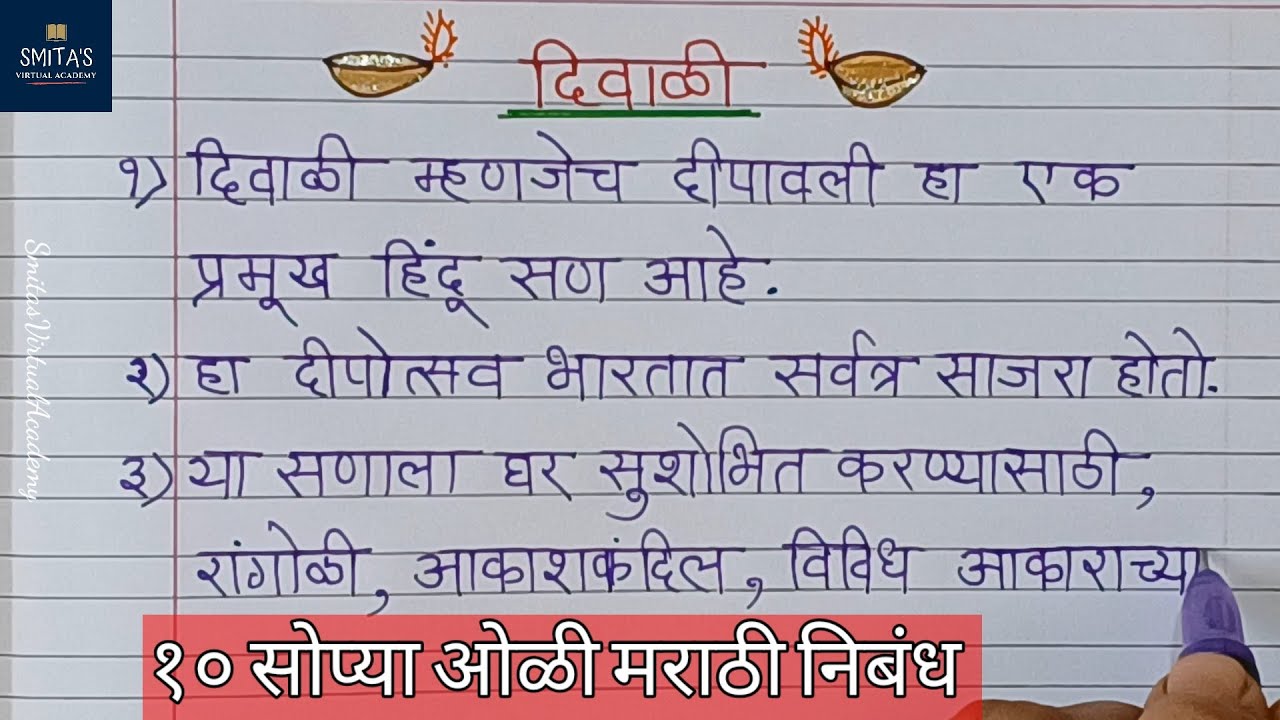 SMITA'S
VIRTUAL ACADEMY
दिवाळी
१) दिवाळी म्हणजेच दीपावली हा एक
प्रमूख हिंदू सण आहे.
२) हा दीपोत्सव भारतात सर्वत्र साजरा होतो.
३) या सणाला घर सुशोभित करण्यासाठी,
रांगोळी, आकाशकंदिल, विविध आकाराच्या
SmitasVirtualAcademy
१० सोप्या ओळी मराठी निबंध